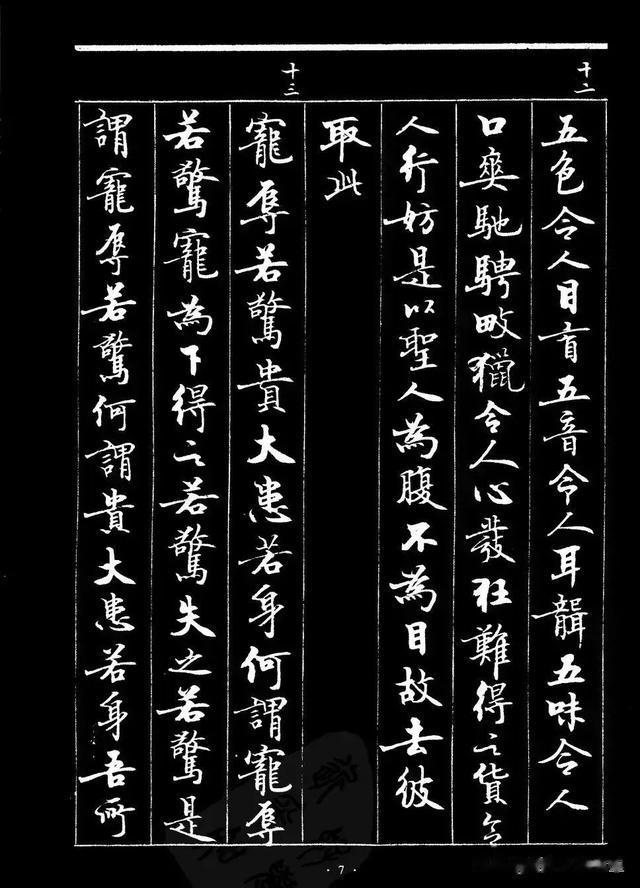 十二
五色令人目盲五音令人耳聾五味令人
口爽馳騁畋獵令人心發狂難得之貨令
人行妨是以聖人為腹不為目故去彼
取此
十三
寵辱若驚貴大患若身何謂寵辱
若驚寵為下得之若驚失之若驚是
謂寵辱若驚何謂貴大患若身吾所
· 7 ·